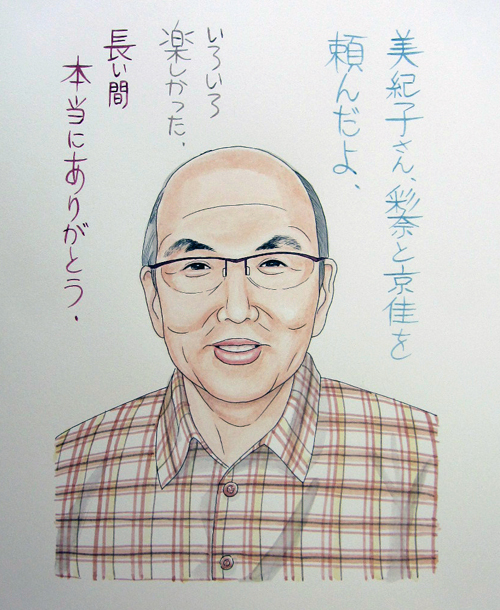 美紀子さん、彩奈と京佳を
頼んだよ、
いろいろ
楽しかった.
長い間
本当にありがとう.